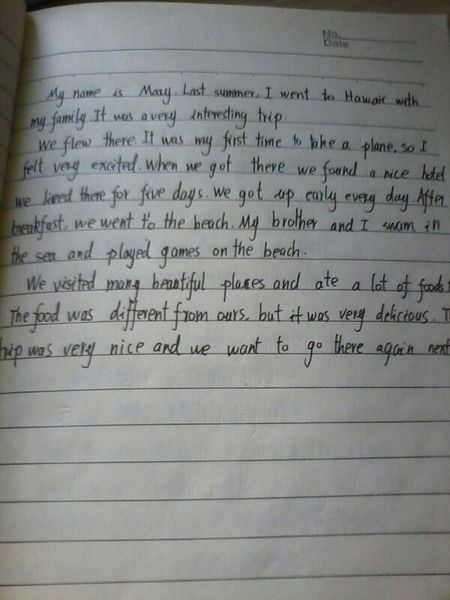 No.
Date
My name is Mary. Last summer, I went to Hawaii with
my family It was a very interesting trip
We flew there It was my first time to take a plane, so I
felt very excited. When we got there we found a nice hotel
we lived there for five days. We got up early every day. After
breakfast, we went to the beach. My brother and I swam in
the sea and played games on the beach.
We visited many beautiful places and ate a lot of foods
The food was different from ours, but it was very delicious. T
trip was very nice and we want to go there again next